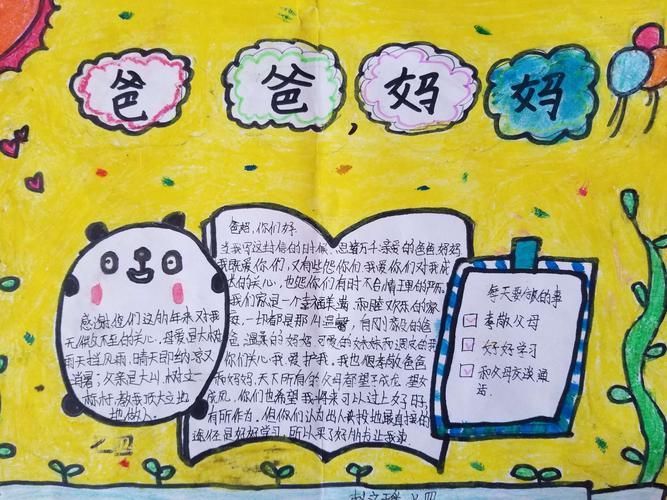 爸爸,妈妈
感谢你们这么多年来对我
无微不至的关心,母爱是大树
雨天挡风雨,晴天即纳凉又
当暑;父亲是大山,树立一
标杆,教我顶天立地
地做人。
爸妈,你们好:
当我写这封信的时候,思绪万千亲爱的爸爸妈妈
我既爱你们,又有些怨你们,我爱你们对我
的关心,也怨你们有时不合情理的严厉
我们家是一个幸福美满,和睦欢乐的家
庭,一切都是那么温馨,有
爸,温柔的妈妈,可爱的妹妹和调皮的我
你们关心我,爱护我,我也很孝敬爸爸
和妈妈,天下所有父母都望子成龙,望女
成凤,你们也希望我将来可以过上好日子,
有所作为,但你们认为出人头地最直接的
途径是好好学习,所以
每天要做的事
孝敬父母
好好学习
和父母多谈通
话。